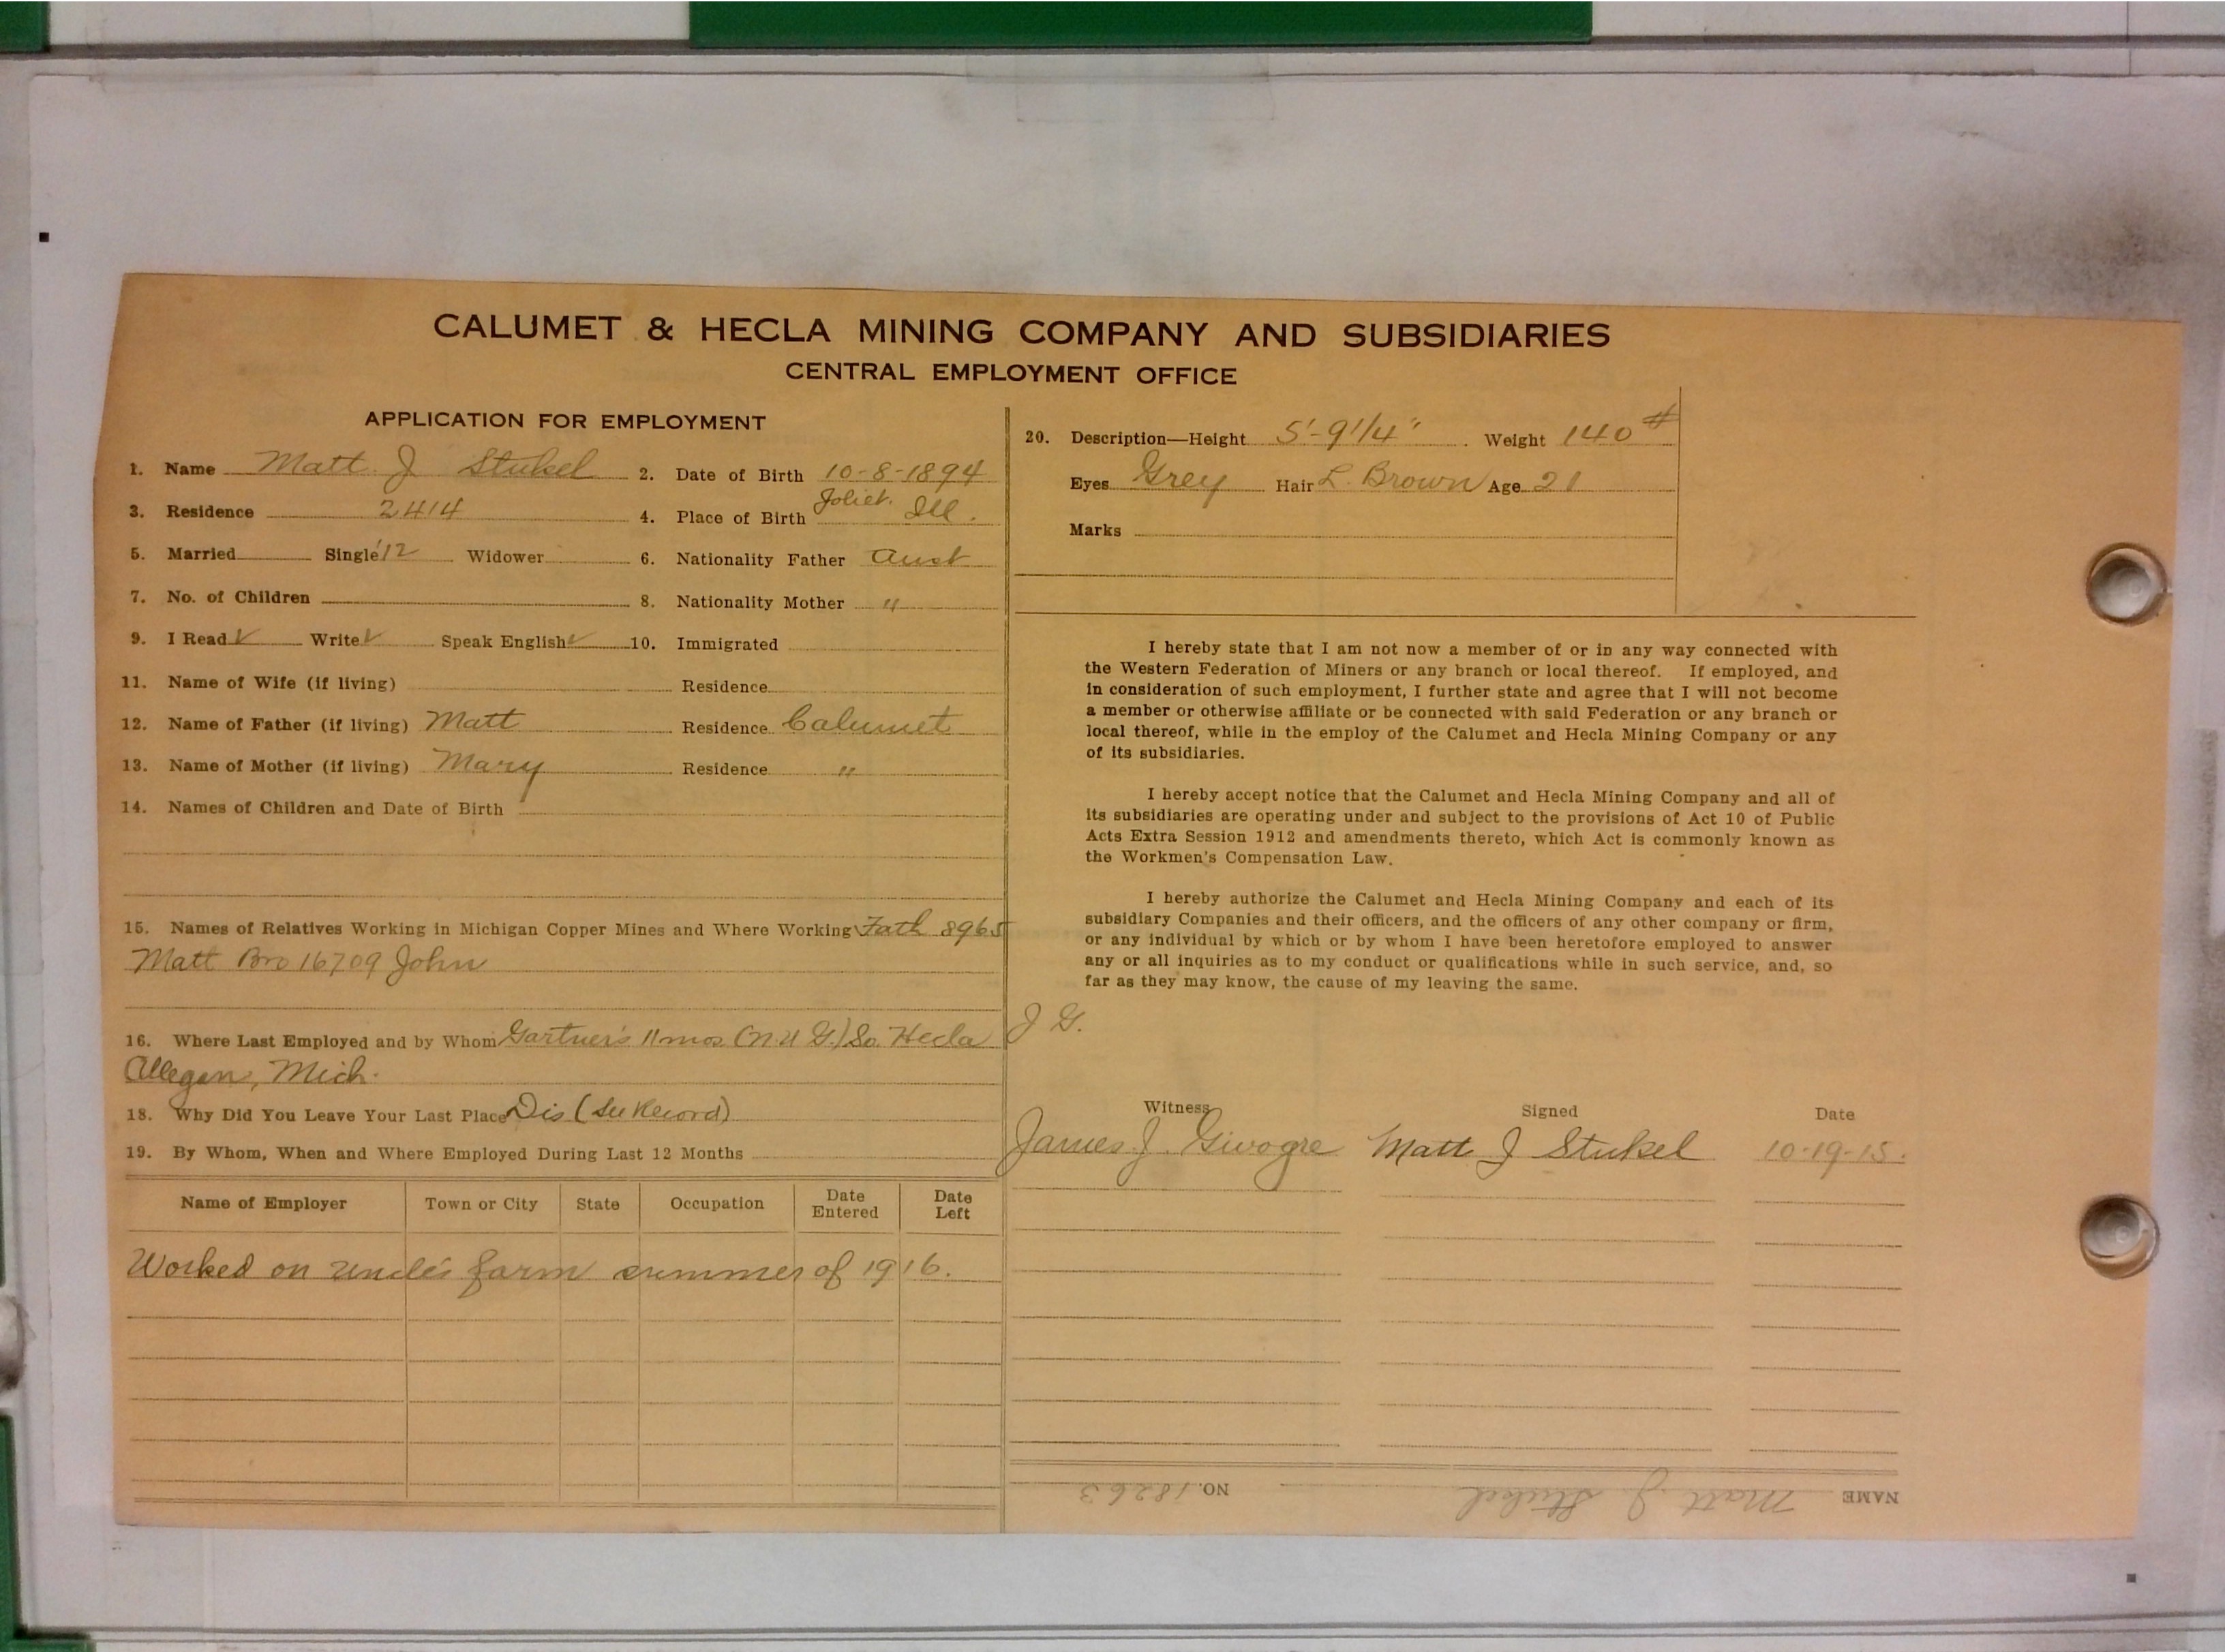 CALUMET & HECLA MINING COMPANY AND SUBSIDIARIES
CENTRAL EMPLOYMENT OFFICE
APPLICATION FOR EMPLOYMENT
1. Name Matt J Stukel 2. Date of Birth 10-8-1894
3. Residence 2414 4. Place of Birth Joliet. Ill.
5. Married Single '12 Widower 6. Nationality Father Aust
7. No. of Children 8. Nationality Mother "
9. I Read ✓ Write ✓ Speak English ✓ 10. Immigrated
11. Name of Wife (if living) Residence
12. Name of Father (if living) Matt Residence Calumet
13. Name of Mother (if living) Mary Residence "
14. Names of Children and Date of Birth
15. Names of Relatives Working in Michigan Copper Mines and Where Working Fath 8965
Matt Bro 16709 John
16. Where Last Employed and by Whom Gartner's 11 mos (N.U G.) So. Hecla J G.
Allegan, Mich.
18. Why Did You Leave Your Last Place Dis (See Record)
19. By Whom, When and Where Employed During Last 12 Months
Name of Employer Town or City State Occupation Date Entered Date Left
Worked on uncle's farm summer of 1916.
20. Description—Height 5'-9 1/4" Weight 140 #
Eyes Grey Hair L. Brown Age 21
Marks
I hereby state that I am not now a member of or in any way connected with
the Western Federation of Miners or any branch or local thereof. If employed, and
in consideration of such employment, I further state and agree that I will not become
a member or otherwise affiliate or be connected with said Federation or any branch or
local thereof, while in the employ of the Calumet and Hecla Mining Company or any
of its subsidiaries.
I hereby accept notice that the Calumet and Hecla Mining Company and all of
its subsidiaries are operating under and subject to the provisions of Act 10 of Public
Acts Extra Session 1912 and amendments thereto, which Act is commonly known as
the Workmen's Compensation Law.
I hereby authorize the Calumet and Hecla Mining Company and each of its
subsidiary Companies and their officers, and the officers of any other company or firm,
or any individual by which or by whom I have been heretofore employed to answer
any or all inquiries as to my conduct or qualifications while in such service, and, so
far as they may know, the cause of my leaving the same.
Witness Signed Date
James J. Givogre Matt J Stukel 10-19-15.
NAME Matt J. Stukel NO. 18263